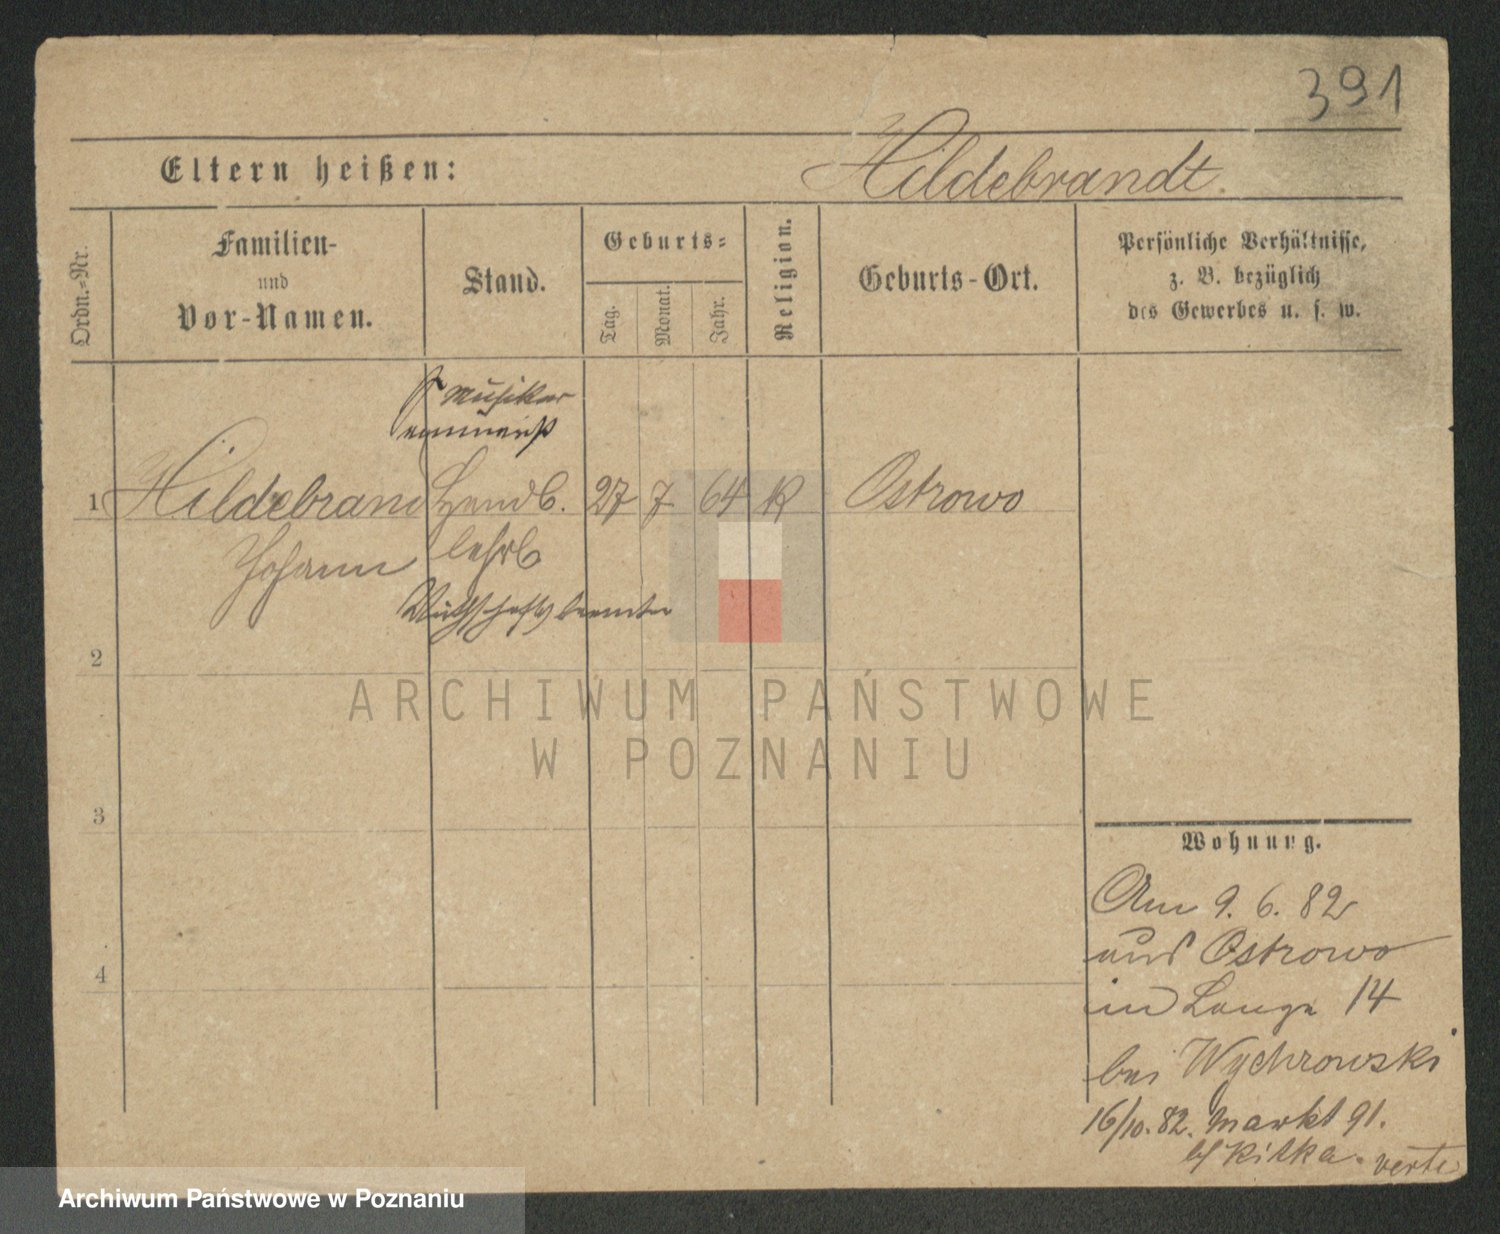 391
Eltern heißen: Hildebrandt.
Ordn.-Nr.
Familien-
und
Vor-Namen.
Stand.
Geburts-
Tag.
Monat.
Jahr.
Religion.
Geburts-Ort.
Persönliche Verhältnisse,
z. B. bezüglich
des Gewerbes u. s. w.
Musiker
1 Hildebrand Handl. 27 7 64 K Ostrowo
Johann lehrl
Wirthschaftsbeamter
2
3
4
ARCHIWUM PAŃSTWOWE
W POZNANIU
Wohnung.
Am 9. 6. 82
aus Ostrowo
in Lange 14
bei Wychrowski
16/10. 82. Markt 91.
b/ Kilka. verte
Archiwum Państwowe w Poznaniu